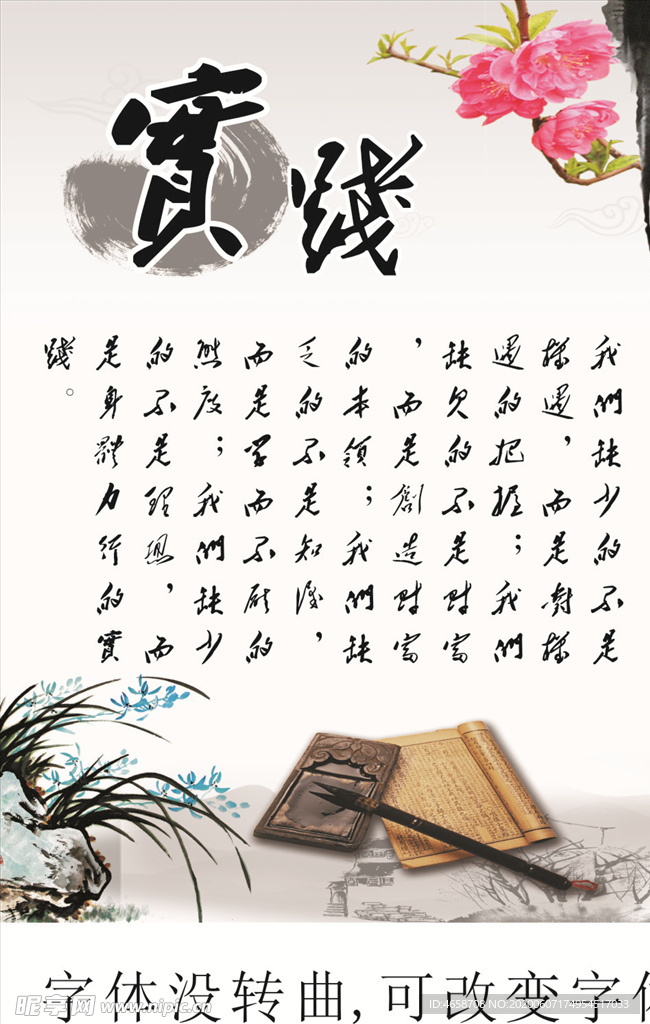 實踐
我們缺少的不是
機遇，而是對機
遇的把握；我們
缺欠的不是財富
，而是創造財富
的本領；我們缺
乏的不是知識，
而是學而不厭的
態度；我們缺少
的不是理想，而
是身體力行的實
踐。
字体没转曲,可改变字体
昵享网 www.nipic.cn